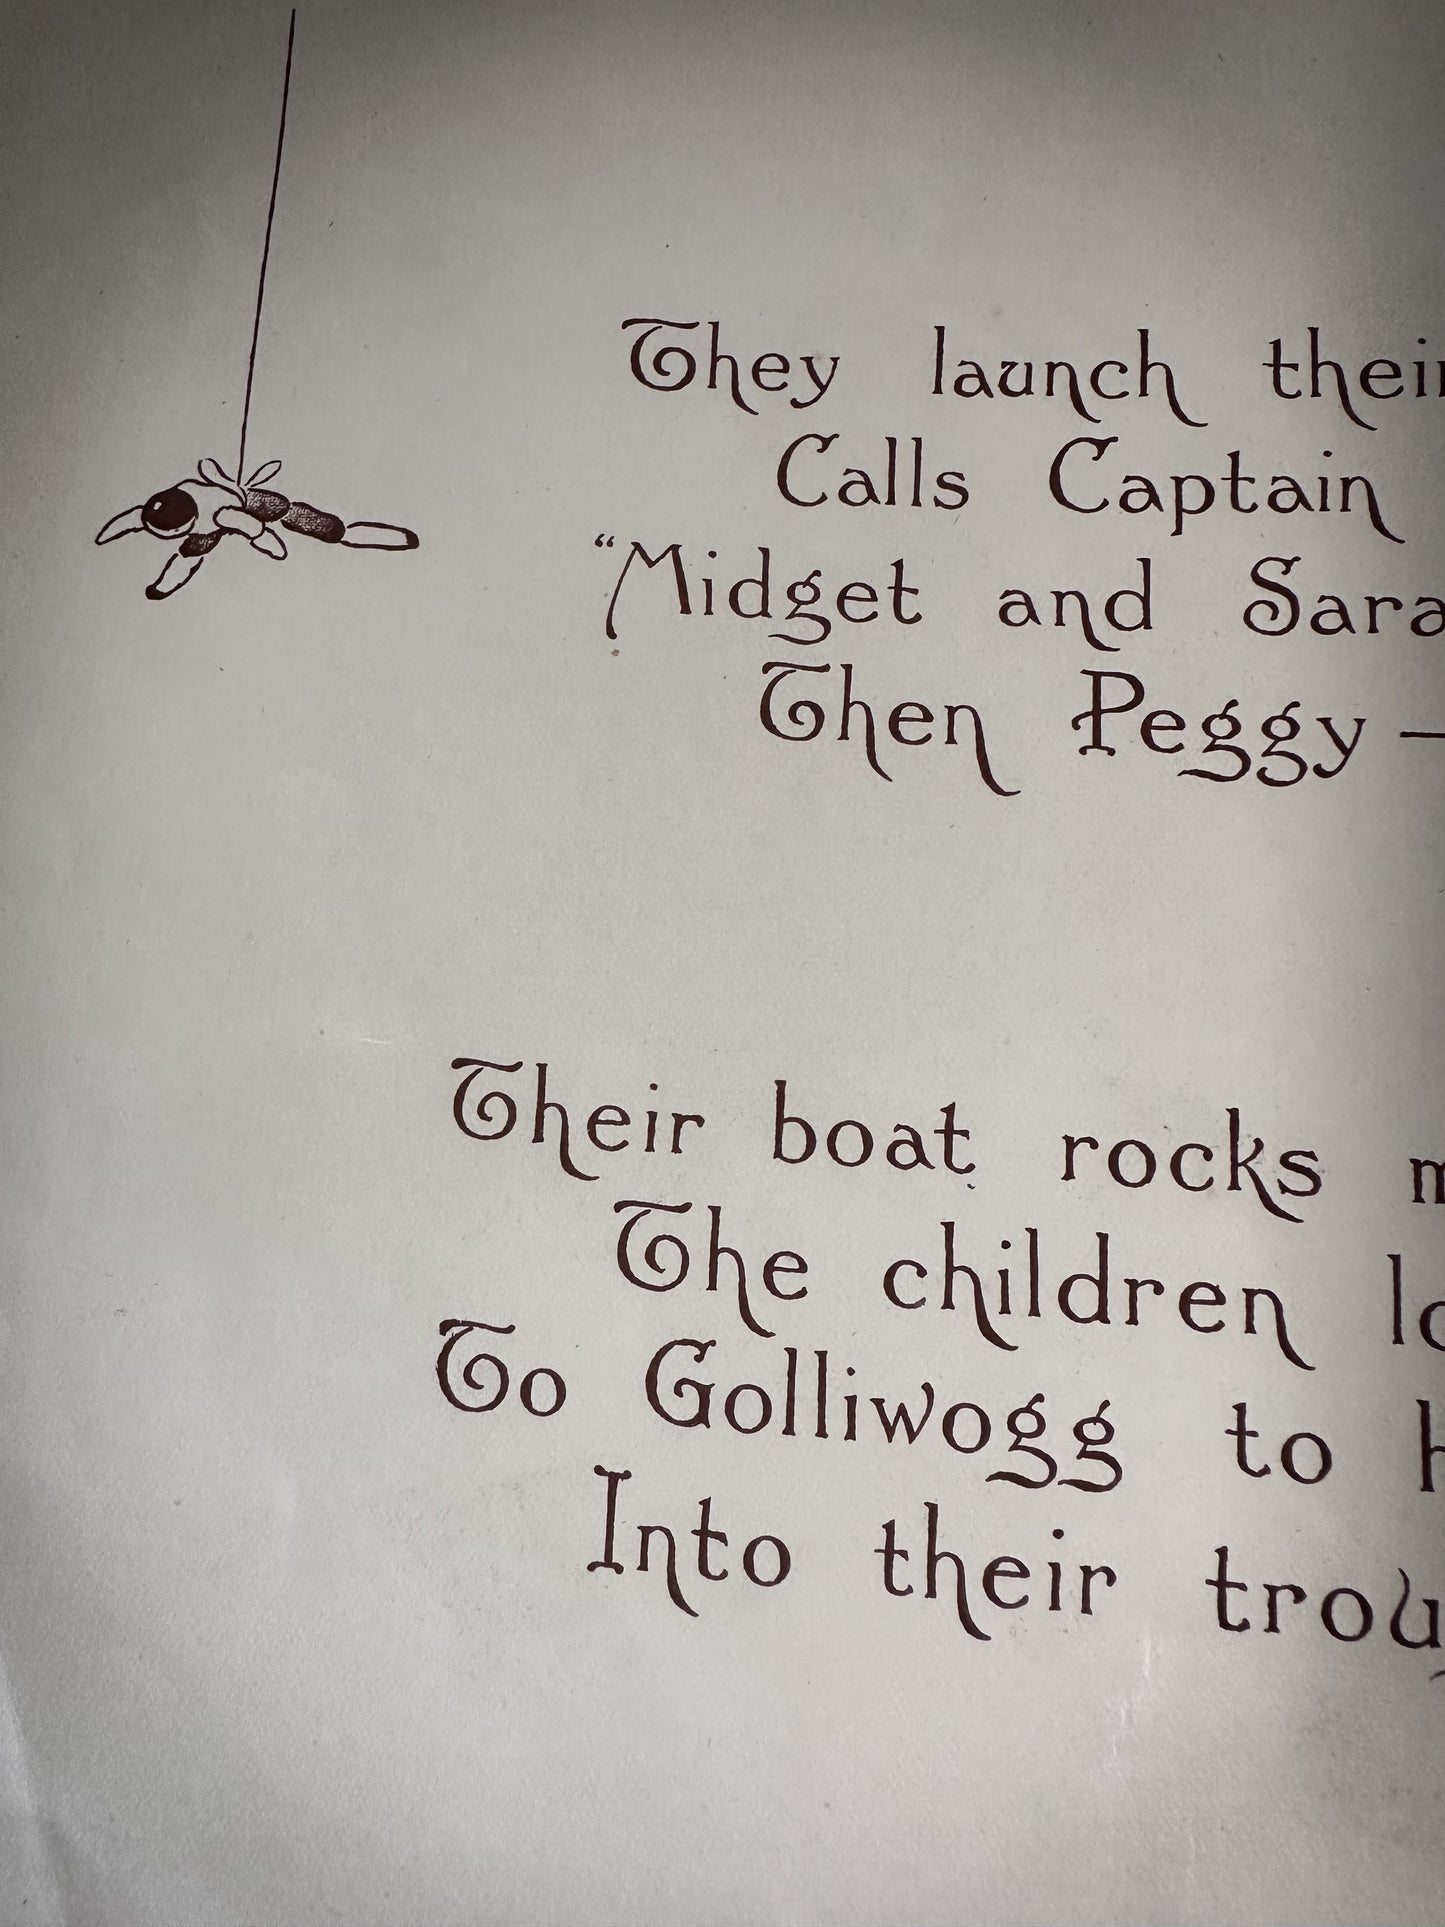 They launch their
Calls Captain
“Midget and Sara
Then Peggy —
Their boat rocks m
The children lo
To Golliwogg to h
Into their troug